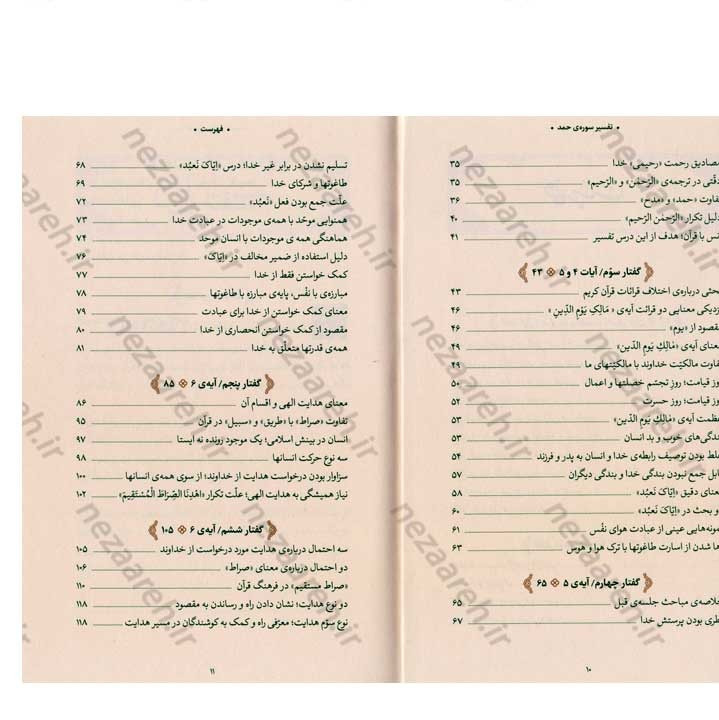 • تفسیر سوره‌ی حمد •
مصادیق رحمت «رحیمی» خدا ۳۵
دقّتی در ترجمه‌ی «الرّحمٰن» و «الرّحیم» ۳۵
تفاوت «حمد» و «مدح» ۳۶
دلیل تکرار «الرّحمٰن الرّحیم» ۴۰
اُنس با قرآن؛ هدف از این درس تفسیر ۴۱
گفتار سوّم/ آیات ۴ و ۵ ۴۳
بحثی درباره‌ی اختلاف قرائات قرآن کریم ۴۳
نزدیکی معنایی دو قرائت آیه‌ی « مَالِکِ یَوْمِ الدِّینِ » ۴۶
مقصود از «یوم» ۴۶
معنای آیه‌ی «مَالِكِ یَومِ الدّین» ۴۹
تفاوت مالکیّت خداوند با مالکیّتهای ما ۴۹
روز قیامت؛ روز تجسّم خصلتها و اعمال ۵۰
روز قیامت؛ روز حسرت ۵۲
عظمت آیه‌ی «مَالِكِ یَومِ الدّین» ۵۳
بندگی‌های خوب و بد انسان ۵۳
غلط بودن توصیف رابطه‌ی خدا و انسان به پدر و فرزند ۵۴
قابل جمع نبودن بندگی خدا و بندگی دیگران ۵۷
معنای دقیق «اِیّاکَ نَعبُد» ۵۸
دو بحث در «اِیّاکَ نَعبُد» ۶۰
نمونه‌هایی عینی از عبادت هوای نفْس ۶۱
رها شدن از اسارت طاغوتها با ترک هوا و هوس ۶۳
گفتار چهارم/ آیه‌ی ۵ ۶۵
خلاصه‌ی مباحث جلسه‌ی قبل ۶۵
فطری بودن پرستش خدا ۶۷
۱۰
• فهرست •
تسلیم نشدن در برابر غیر خدا؛ درس «اِیّاکَ نَعبُد» ۶۸
طاغوتها و شرکای خدا ۶۹
علّت جمع بودن فعل «نَعبُد» ۷۲
همنوایی موحّد با همه‌ی موجودات در عبادت خدا ۷۳
هماهنگی همه ی موجودات با انسان موحد ۷۴
دلیل استفاده از ضمیر مخالف در «اِیّاکَ» ۷۶
کمک خواستن فقط از خدا ۷۷
مبارزه‌ی با نفْس، پایه‌ی مبارزه با طاغوتها ۷۸
معنای کمک خواستن از خدا برای عبادت ۷۹
مقصود از کمک خواستن انحصاری از خدا ۸۰
همه‌ی قدرتها متعلّق به خدا ۸۱
گفتار پنجم/ آیه‌ی ۶ ۸۵
معنای هدایت الهی و اقسام آن ۸۶
تفاوت «صراط» با «طریق» و «سبیل» در قرآن ۹۵
انسان در بینش اسلامی؛ یک موجود رونده نه ایستا ۹۷
سه نوع حرکت انسانها ۹۸
سزاوار بودن درخواست هدایت از خداوند؛ از سوی همه‌ی انسانها ۱۰۰
نیاز همیشگی به هدایت الهی؛ علّت تکرار «اهْدِنَا الصِّرَاطَ الْمُسْتَقِیمَ» ۱۰۲
گفتار ششم/ آیه‌ی ۶ ۱۰۵
سه احتمال درباره‌ی هدایت مورد درخواست از خداوند ۱۰۵
دو احتمال درباره‌ی معنای «صراط» ۱۰۶
«صراط مستقیم» در فرهنگ قرآن ۱۱۰
دو نوع هدایت؛ نشان دادن راه و رساندن به مقصود ۱۱۸
نوع سوّم هدایت؛ معرّفی راه و کمک به کوشندگان در مسیر هدایت ۱۱۸
۱۱
nezaareh.ir